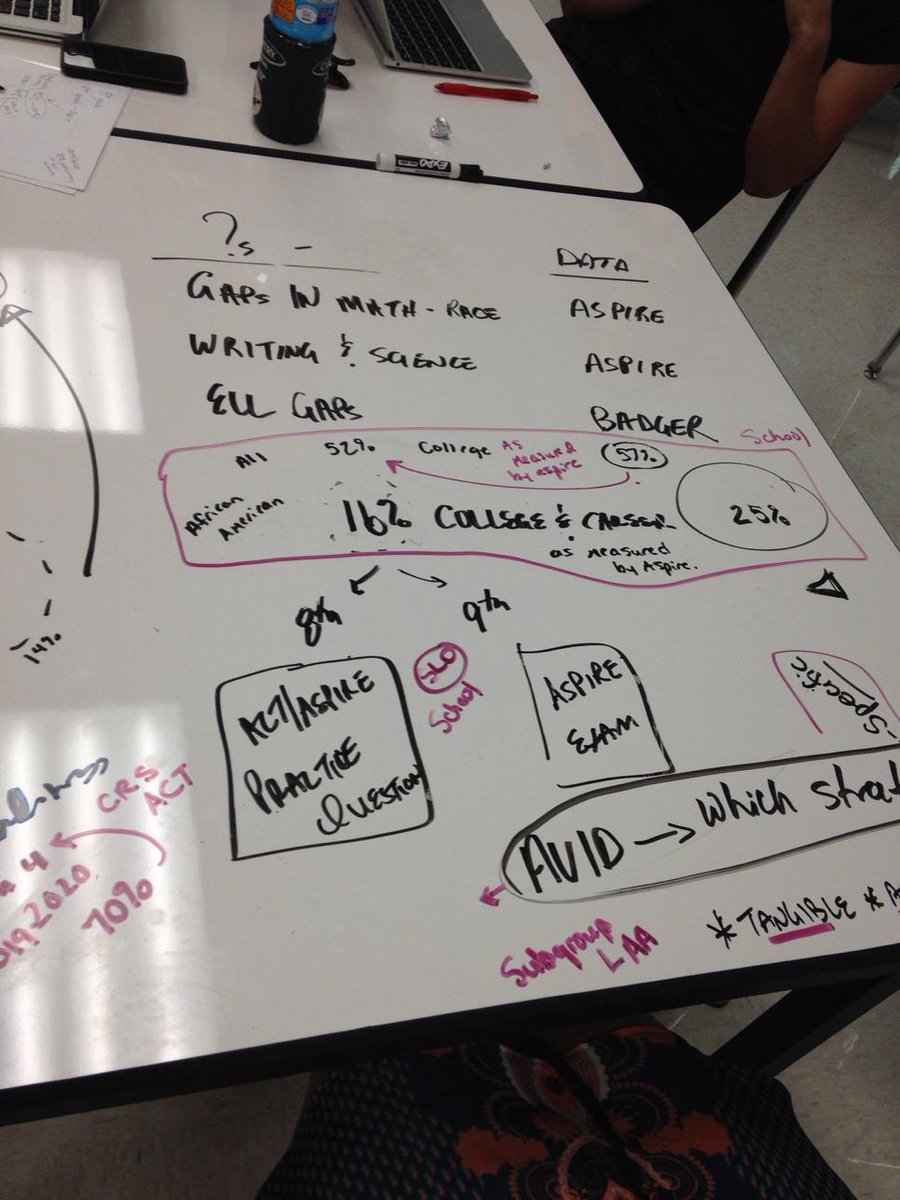 EXPO
?s -
DATA
GAPS IN MATH - RACE
ASPIRE
WRITING & SCIENCE
ASPIRE
ELL GAPS
BADGER
School
All
52%
College
As measured by aspire
57%
African American
16%
COLLEGE & CAREER
as measured by Aspire.
25%
8th
9th
14%
ACT/ASPIRE
PRACTICE
QUESTION
SLO
School
ASPIRE
EXAM
Specific
CRS
ACT
4
2020
70%
AVID → which strat
Subgroup
LAA
* TANGIBLE *